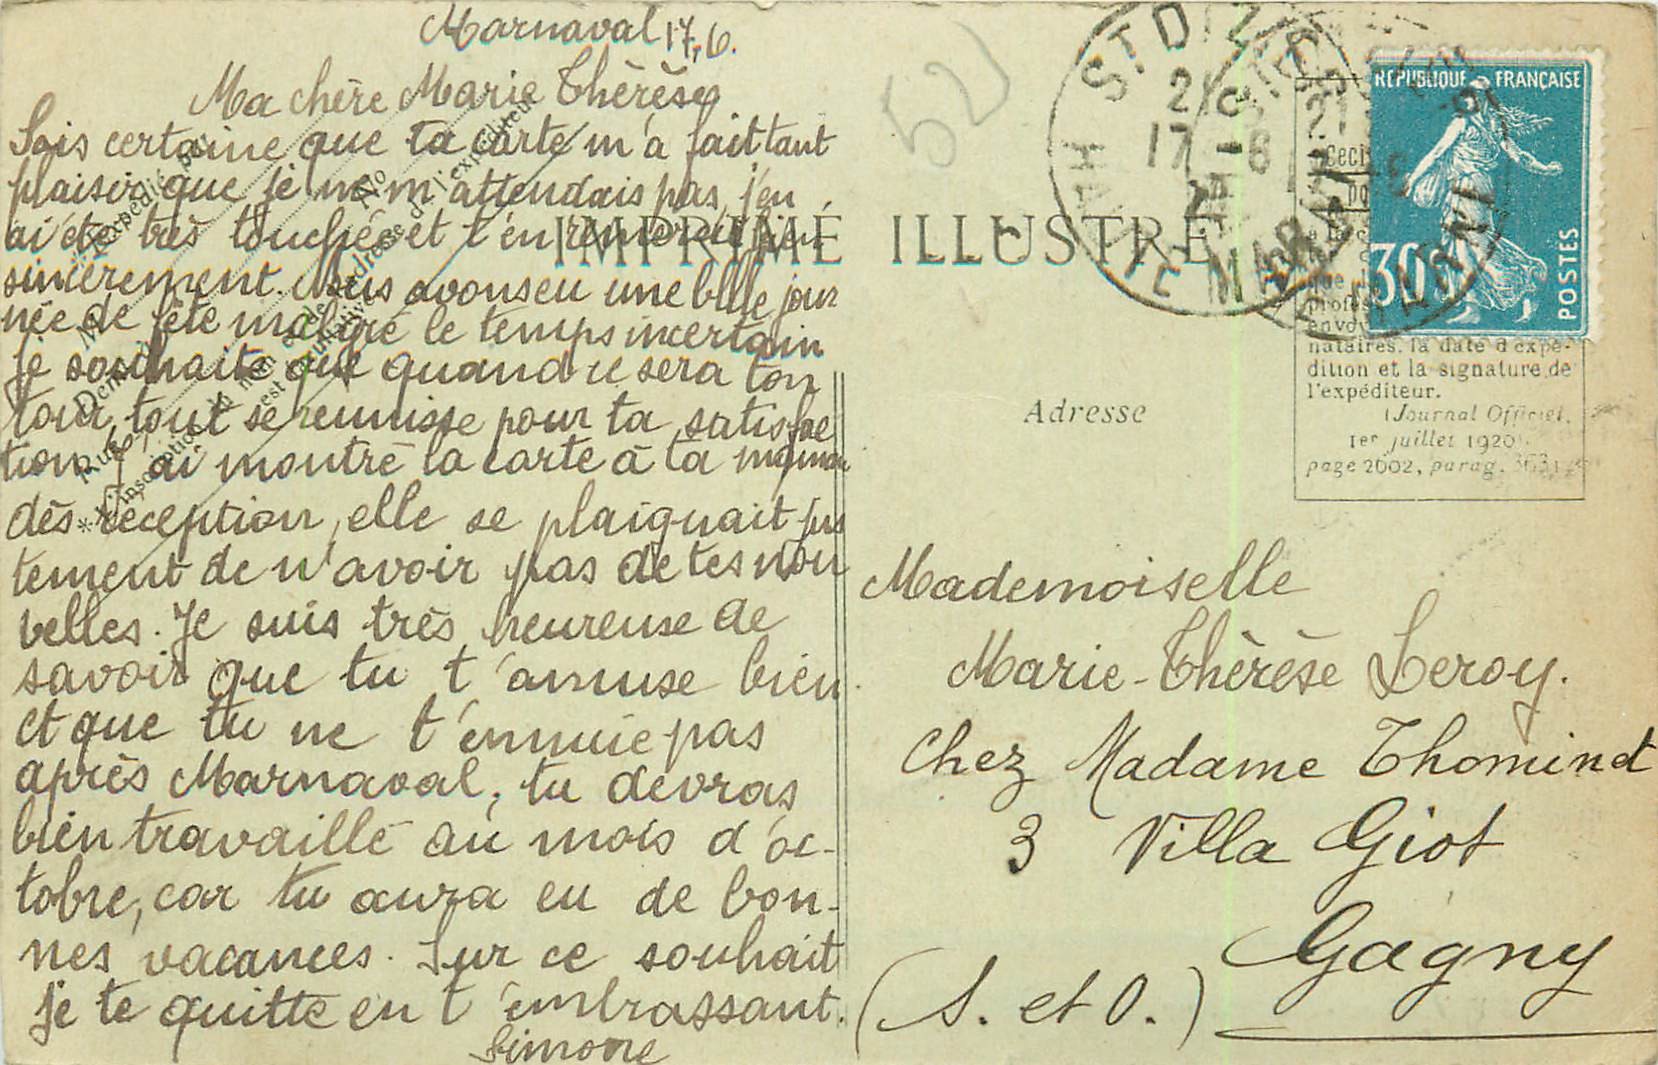 Marnaval 17.6.
Ma chère Marie Thérèse
Sois certaine que ta carte m'a fait tant
plaisir que je ne m'attendais pas, j'en
ai été très touchée et t'en remercie bien
sincèrement. Nous avons eu une belle jour
née de fête malgré le temps incertain
je souhaite que quand ce sera ton
tour, tout se reunisse pour ta satisfac
tion. J'ai montré la carte à ta maman
dès réception, elle se plaignait jus
tement de n'avoir pas de tes nou
velles. Je suis très heureuse de
savoir que tu t'amuse bien
et que tu ne t'ennuie pas
après Marnaval, tu devras
bien travaillé au mois d'oc-
tobre, car tu aura eu de bon-
nes vacances. Sur ce souhait
je te quitte en t'embrassant.
Simone
IMPRIMÉ ILLUSTRÉ
Adresse
52
ST DIZIER
17 -6
HAUTE MARNE
RÉPUBLIQUE FRANÇAISE
30
POSTES
Ceci
nataires, la date d'expé-
dition et la signature de
l'expéditeur.
(Journal Officiel,
1er juillet 1920
page 2002, parag. 363)
Mademoiselle
Marie-Thérèse Leroy.
Chez Madame Thominet
3 Villa Giot
Gagny
(S. et O.)